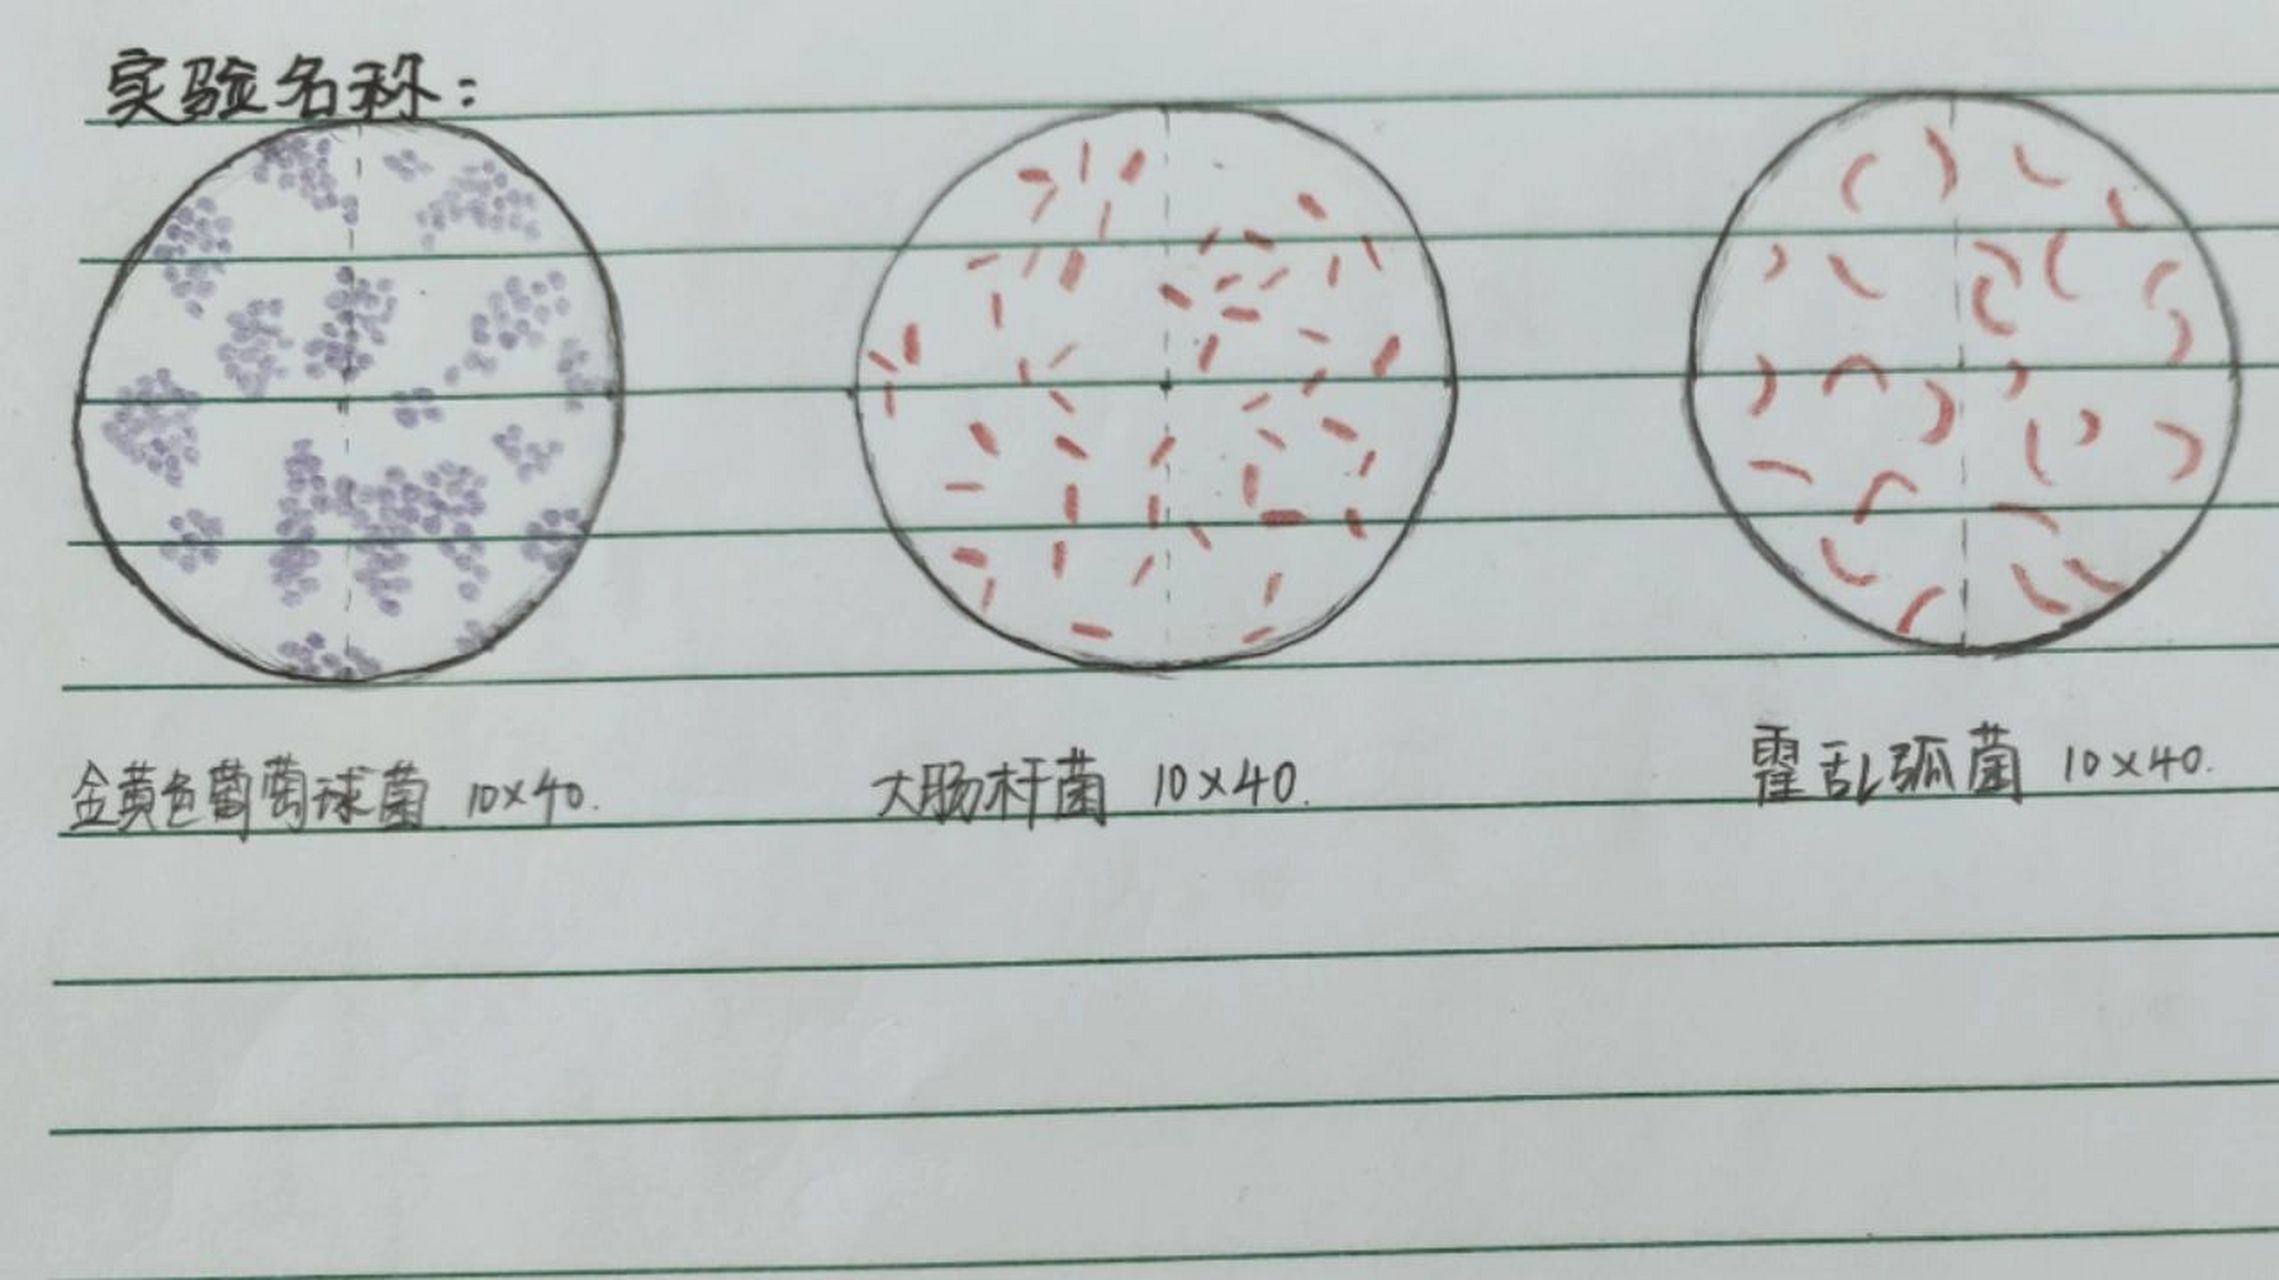 实验名称：
金黄色葡萄球菌 10×40.
大肠杆菌 10×40.
霍乱弧菌 10×40.